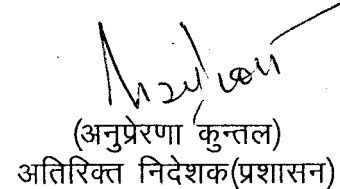 (अनुप्रेरणा कुन्तल)
अतिरिक्त निदेशक(प्रशासन)